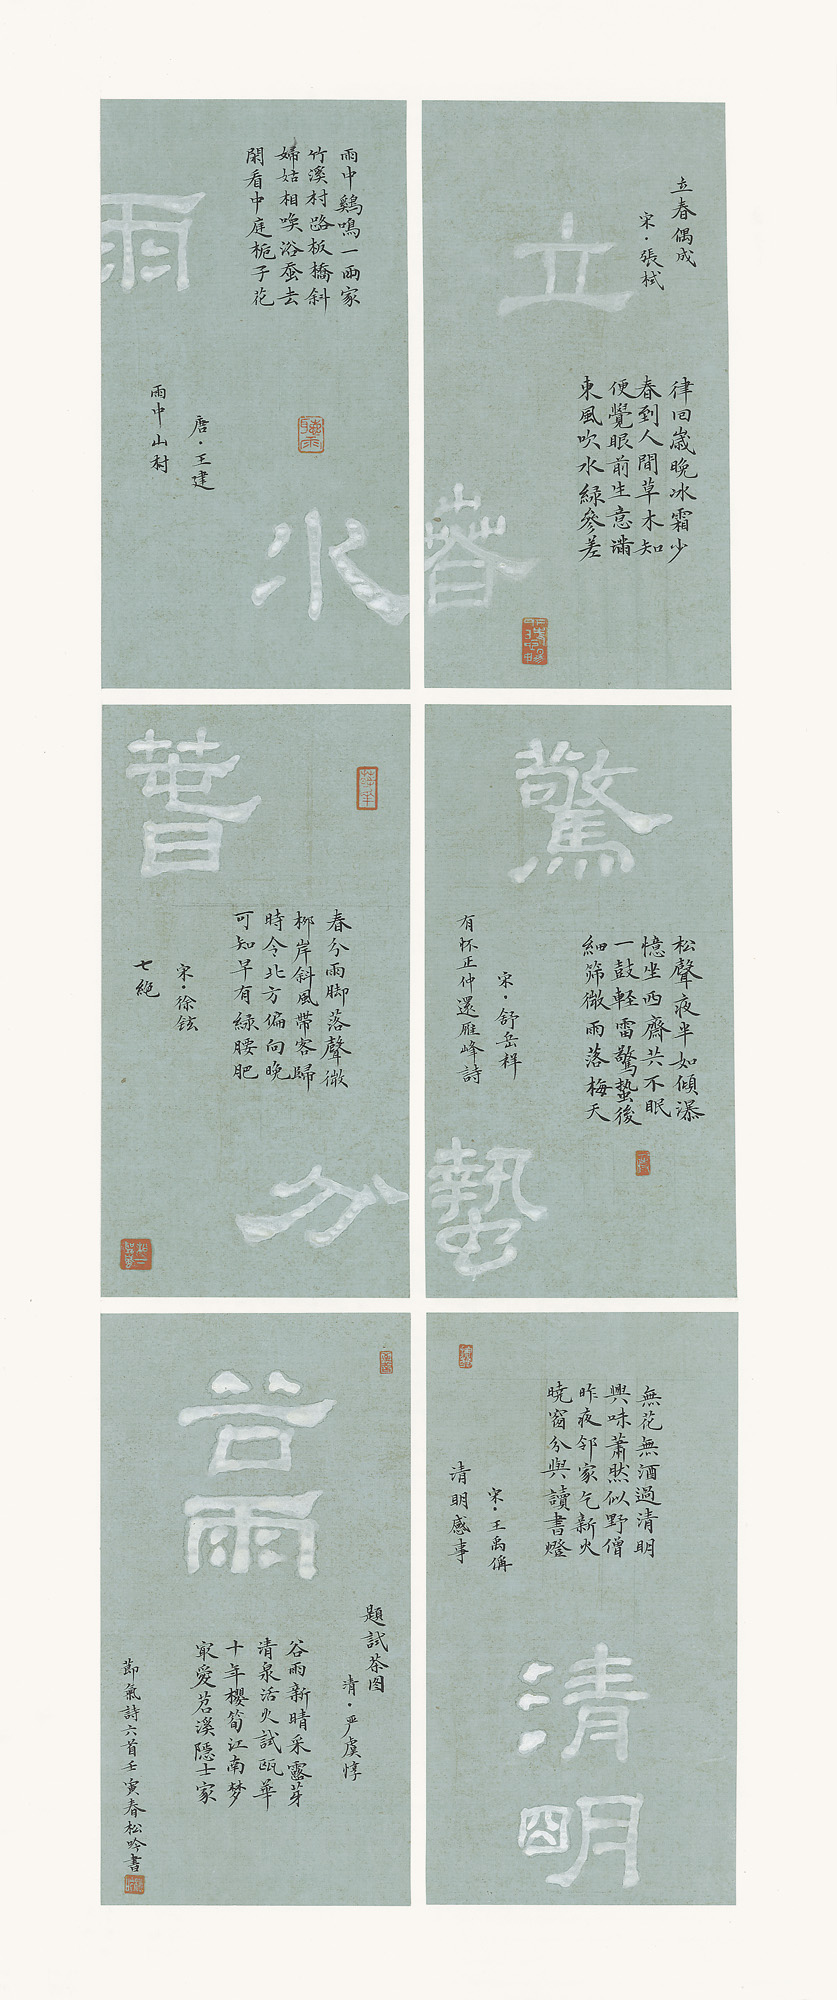 立春
立春偶成
宋·張栻
律回歲晚冰霜少
春到人間草木知
便覺眼前生意滿
東風吹水綠參差
雨水
雨中鷄鳴一兩家
竹溪村路板橋斜
婦姑相喚浴蚕去
閑看中庭梔子花
唐·王建
雨中山村
驚蟄
松聲夜半如傾瀑
憶坐西齋共不眠
一鼓輕雷驚蟄後
細篩微雨落梅天
宋·舒岳祥
有怀正仲還雁峰詩
春分
春分雨脚落聲微
柳岸斜風帶客歸
時令北方偏向晚
可知早有綠腰肥
宋·徐鉉
七絶
清明
無花無酒過清明
興味蕭然似野僧
昨夜邻家乞新火
曉窗分與讀書燈
宋·王禹偁
清明感事
谷雨
題試茶图
清·严虞惇
谷雨新晴采露芽
清泉活火試甌華
十年櫻筍江南梦
最愛苕溪隱士家
節氣詩六首壬寅春松吟書